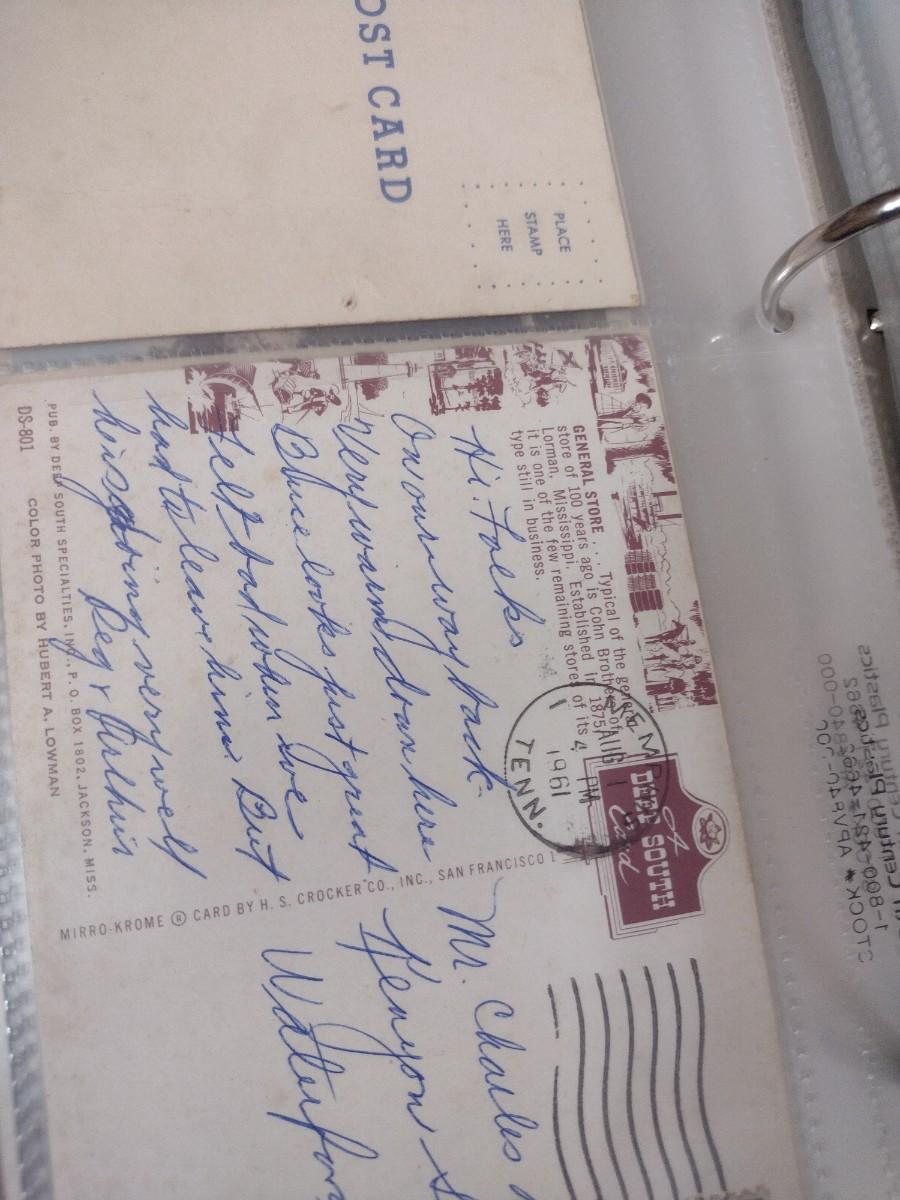 OST CARD
PLACE
STAMP
HERE
GENERAL STORE . . . Typical of the general
store of 100 years ago is Cohn Brothers,
Lorman, Mississippi. Established in 1875,
it is one of the few remaining stores of its
type still in business.
AUG
4 PM
1961
TENN.
A
DEEP SOUTH
Card
Hi. Folks
On our way back.
Very warm down here
Blue looks just great
felt bad when we
had to leave him. But
his doing very well
Peg &
Mr. Charles
Kenyon S
Waterfor
MIRRO-KROME ® CARD BY H. S. CROCKER CO., INC., SAN FRANCISCO 1
PUB. BY DEEP SOUTH SPECIALTIES, INC., P. O. BOX 1802, JACKSON, MISS.
COLOR PHOTO BY HUBERT A. LOWMAN
DS-801